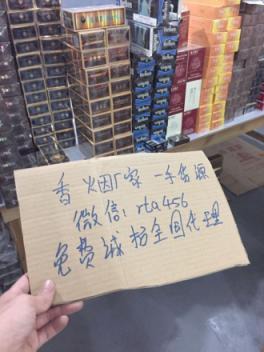 香烟厂家一手货源
微信:rta456
免费诚招全国代理